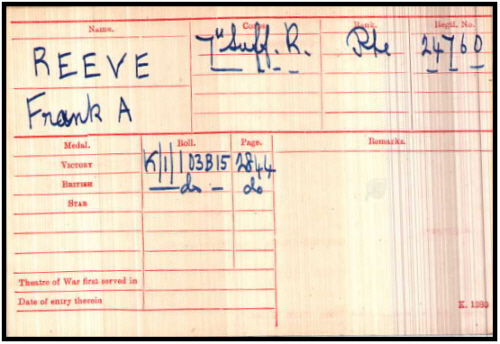 Name. Corps. Rank. Regtl. No.
REEVE 7" Suff. R. Pte 24760
Frank A
Medal. Roll. Page. Remarks.
VICTORY K/1/103B15 2844
BRITISH — do — do
STAR
Theatre of War first served in
Date of entry therein
K. 1380